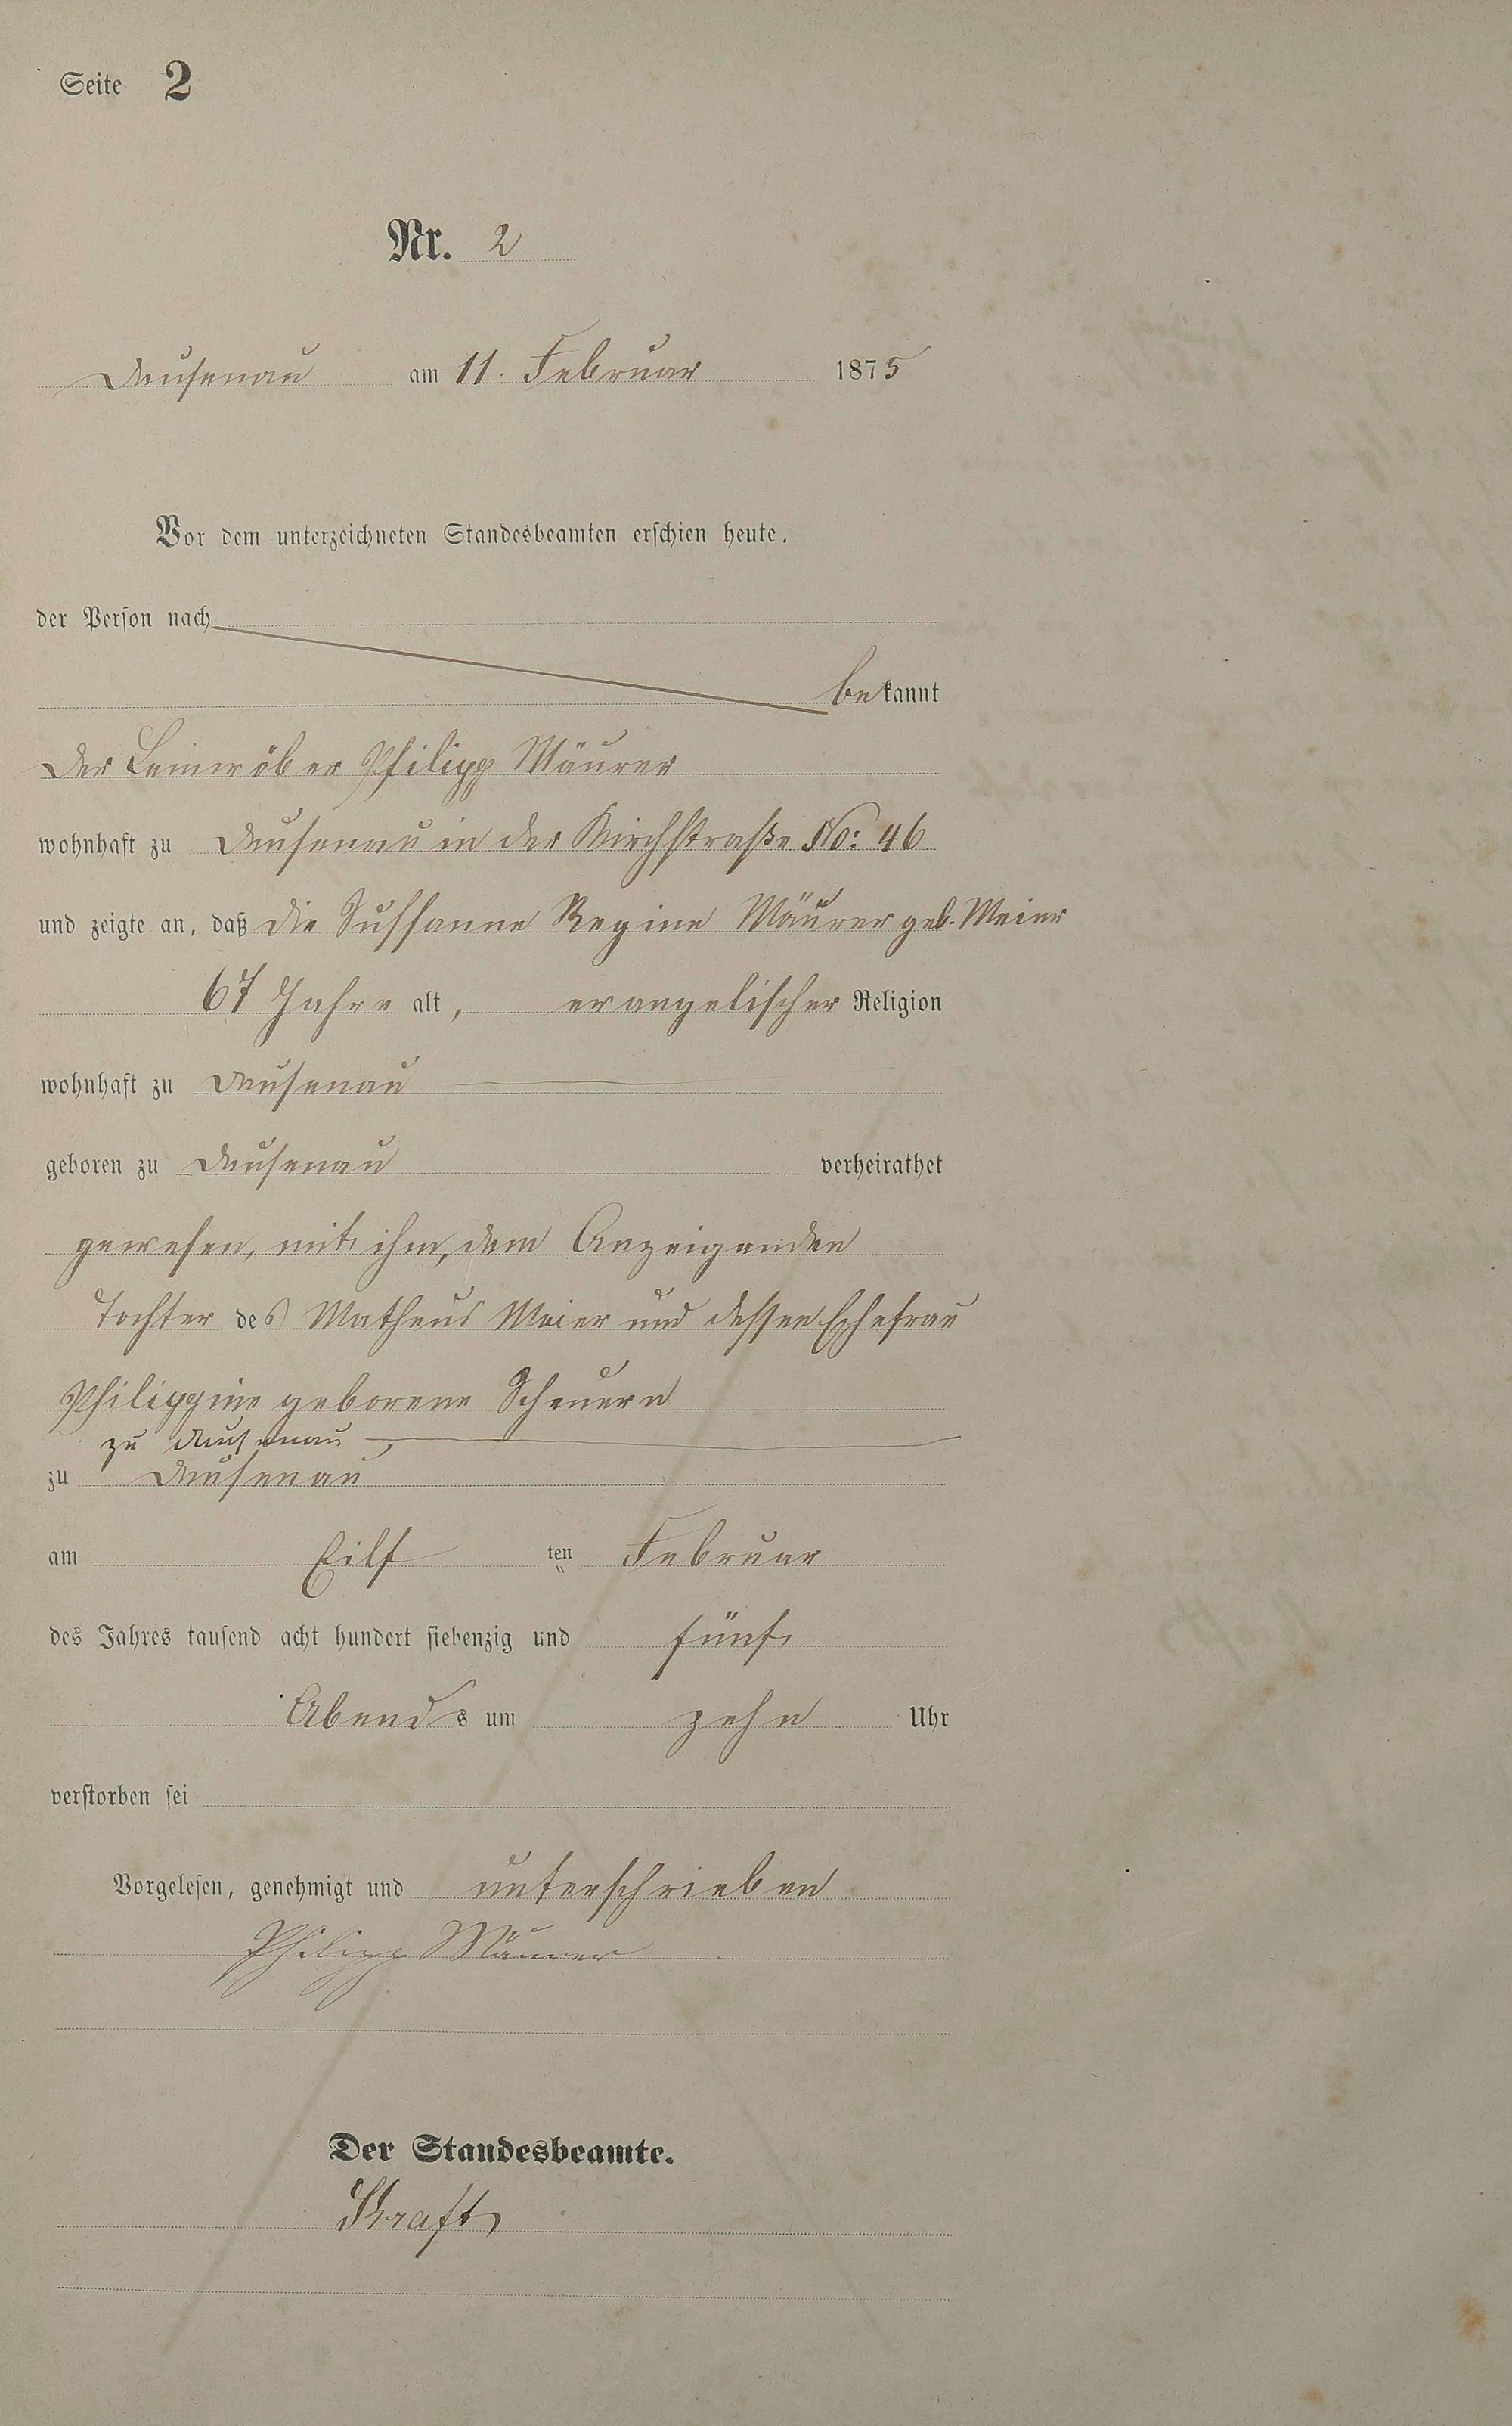 Seite 2
Nr. 2
Dausenau am 11. Februar 1875
Vor dem unterzeichneten Standesbeamten erschien heute,
der Person nach
bekannt
der Leinwöber Philipp Mäurer
wohnhaft zu Dausenau in der Kirchstraße No: 46
und zeigte an, daß die Sussanne Regine Mäurer geb. Meier
67 Jahre alt, evangelischer Religion
wohnhaft zu Dausenau
geboren zu Dausenau verheirathet
gewesen, mit ihm, dem Anzeigenden
Tochter des Matheus Meier und dessen Ehefrau
Philippine geborene Scheuern
zu Dausenau,
zu Dausenau
am Eilf ten Februar
des Jahres tausend acht hundert siebenzig und fünf
Abends um zehn Uhr
verstorben sei
Vorgelesen, genehmigt und unterschrieben
Philipp Mäurer
Der Standesbeamte.
Kraft